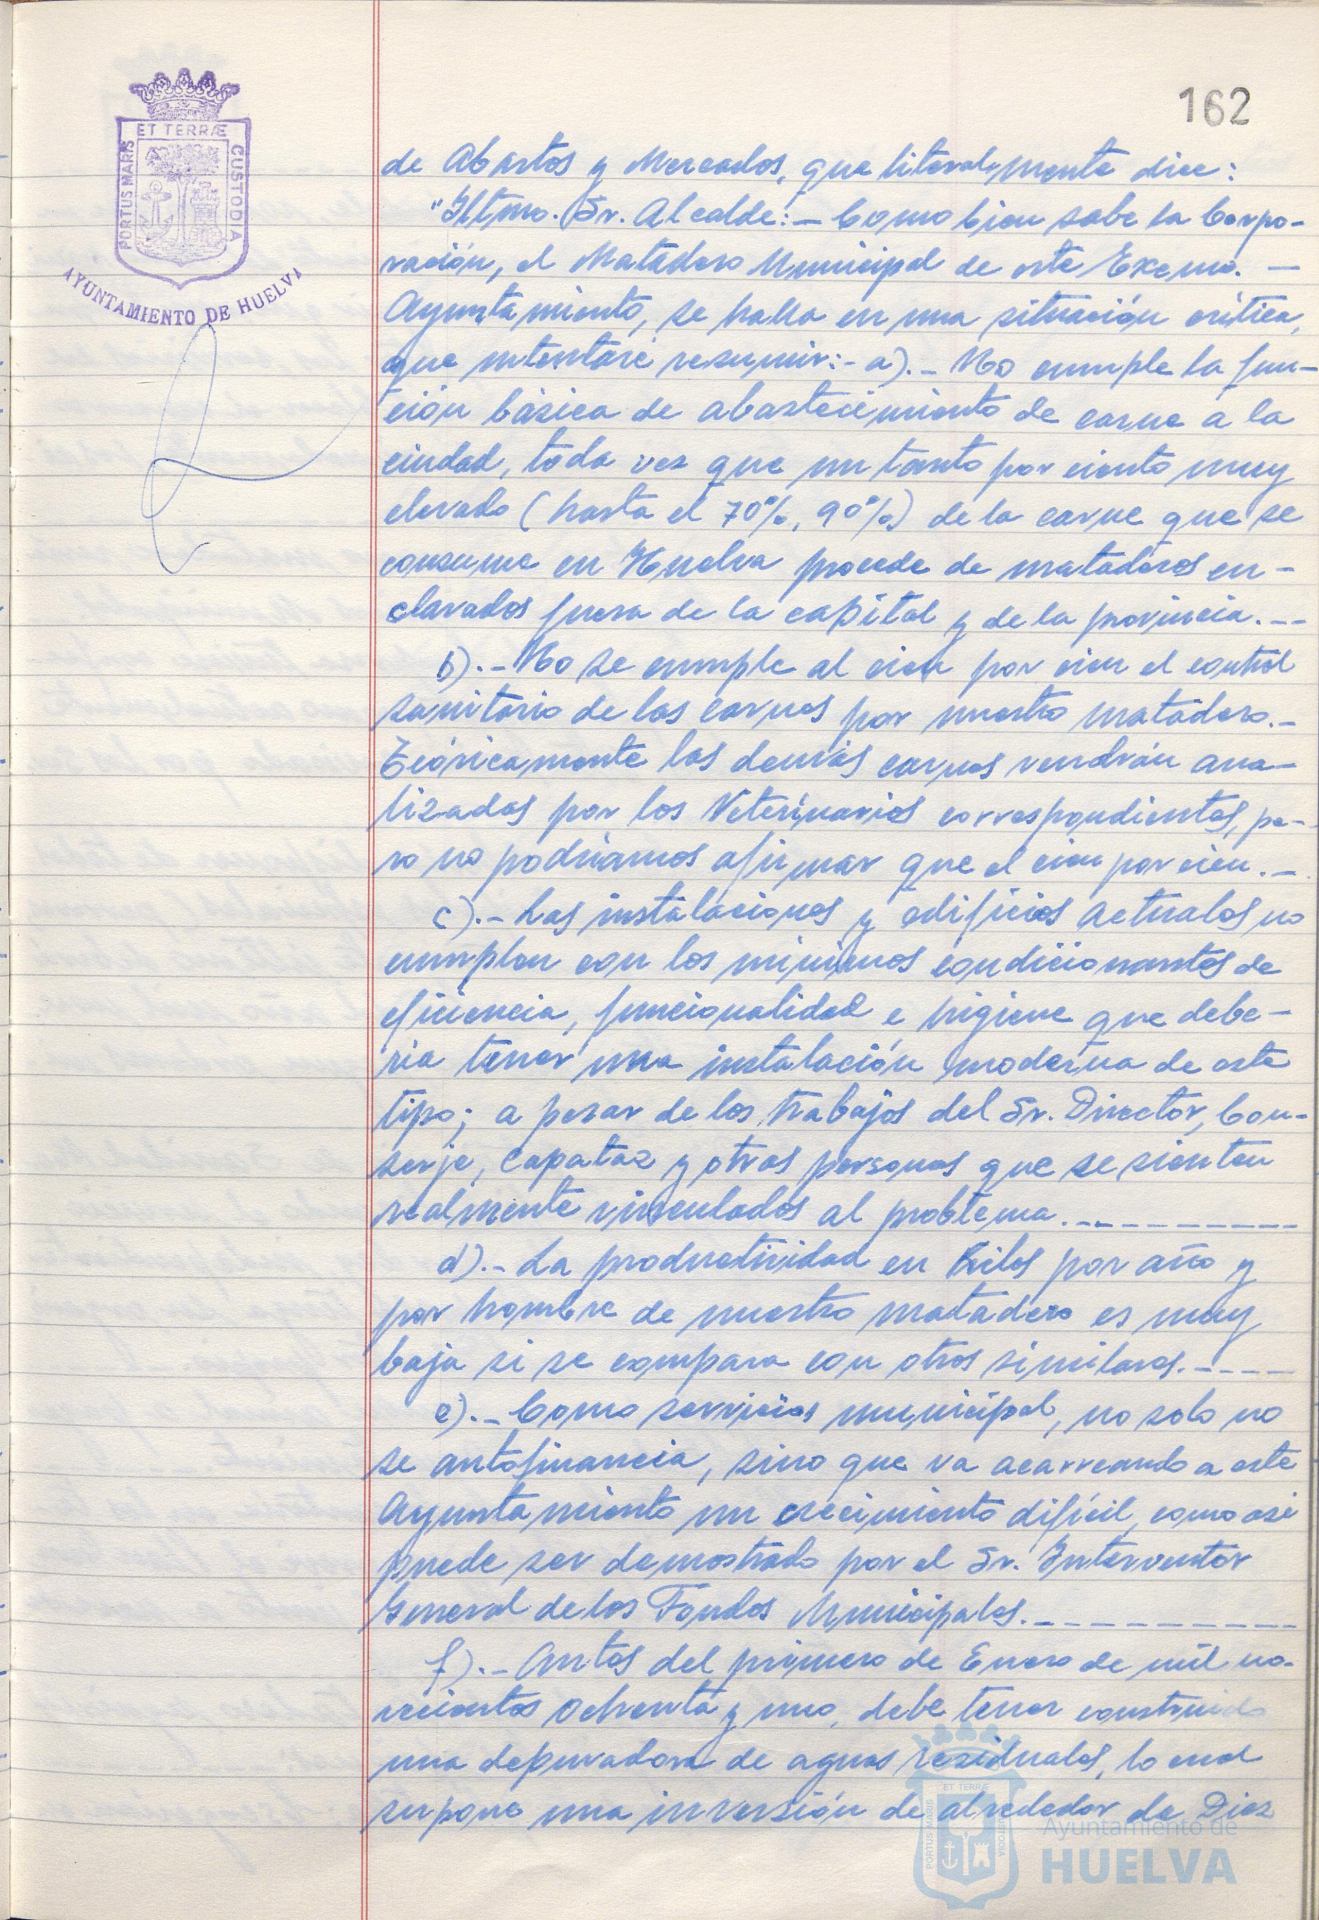 162
ET TERRÆ
PORTUS MARIS
CUSTODIA
AYUNTAMIENTO DE HUELVA
de Abastos y Mercados, que literalmente dice:
"Iltmo. Sr. Alcalde:- Como bien sabe la Corpo-
ración, el Matadero Municipal de este Excmo. —
Ayuntamiento, se halla en una situación crítica,
que intentaré resumir:- a).- No cumple la fun-
ción básica de abastecimiento de carne a la
ciudad, toda vez que un tanto por ciento muy
elevado (hasta el 70%, 90%) de la carne que se
consume en Huelva procede de mataderos en-
clavados fuera de la capital y de la provincia.--
b).- No se cumple al cien por cien el control
sanitario de las carnes por nuestro matadero.-
Teóricamente las demás carnes vendrán ana-
lizadas por los Veterinarios correspondientes, pe-
ro no podríamos afirmar que el cien por cien.-
c).- Las instalaciones y edificios actuales no
cumplen con los mínimos condicionantes de
eficiencia, funcionalidad e higiene que debe-
ría tener una instalación moderna de este
tipo; a pesar de los trabajos del Sr. Director, Con-
serje, Capataz y otras personas que se sienten
realmente vinculados al problema.----------
d).- La productividad en kilos por año y
por hombre de nuestro matadero es muy
baja si se compara con otros similares.-----
e).- Como servicios municipal, no solo no
se autofinancia, sino que va acarreando a este
Ayuntamiento un crecimiento difícil, como así
puede ser demostrado por el Sr. Interventor
General de los Fondos Municipales.----------
f).- Antes del primero de Enero de mil no-
vecientos ochenta y uno, debe tener construido
una depuradora de aguas residuales, lo cual
supone una inversión de alrededor de Diez
ET TERRÆ
PORTUS MARIS
CUSTODIA
Ayuntamiento de
HUELVA